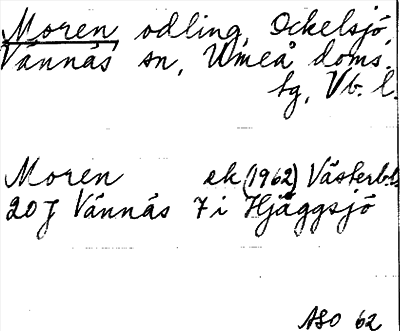 Moren, odling, Ockelsjö,
Vännäs sn, Umeå doms.
tg, Vb. l.
Moren ek (1962) Västerb.l.
20J Vännäs 7i Hjåggsjö
ASO 62